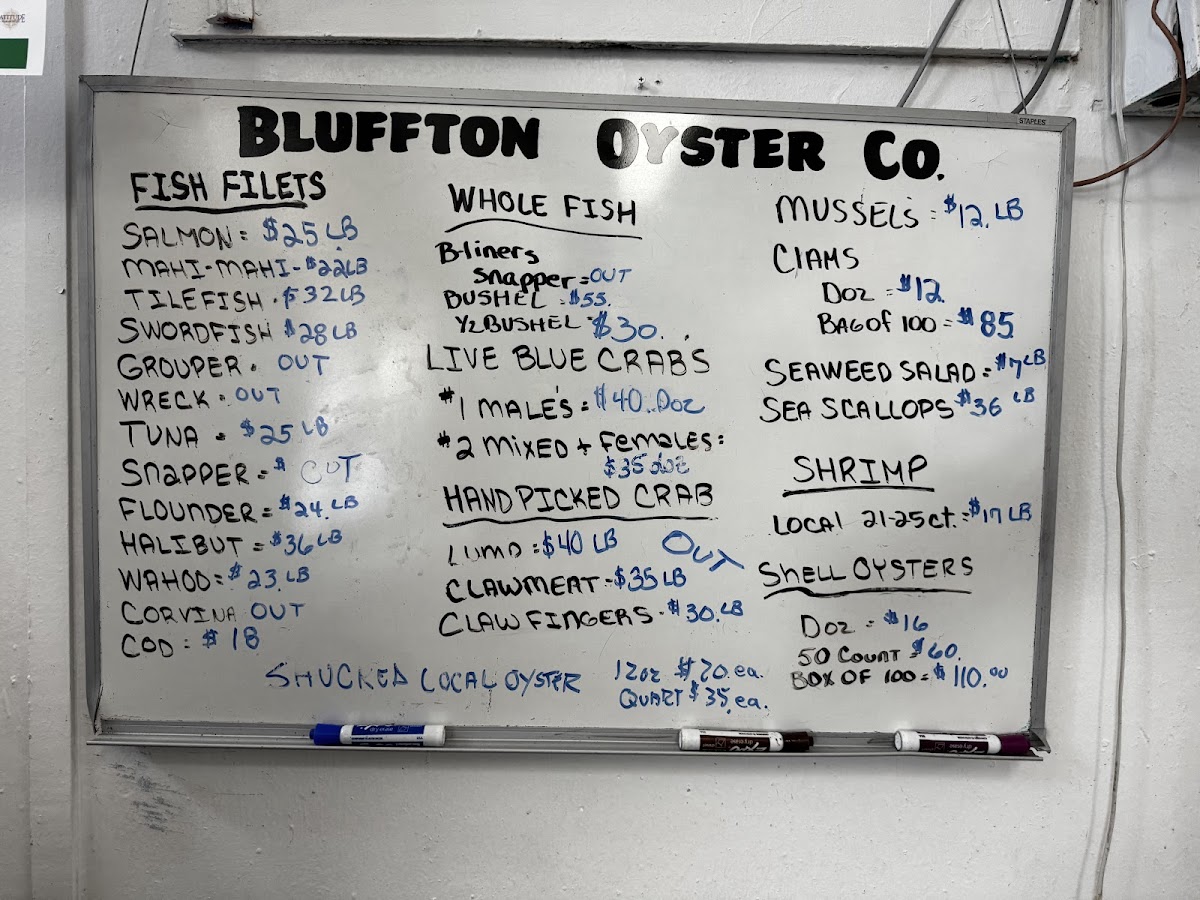 BLUFFTON OYSTER CO.
STAPLES
FISH FILETS
SALMON = $25 LB
MAHI-MAHI - $22LB
TILEFISH - $32LB
SWORDFISH $28 LB
GROUPER - OUT
WRECK - OUT
TUNA = $25 LB
SNAPPER = $ OUT
FLOUNDER = $24. LB
HALIBUT = $36 LB
WAHOO = $23. LB
CORVINA OUT
COD = $18
WHOLE FISH
B-liners
Snapper = OUT
BUSHEL = $55.
1/2 BUSHEL - $30.
LIVE BLUE CRABS
#1 MALE'S = $40. Doz
#2 MIXED + Females:
$35 doz
HAND PICKED CRAB
LUMP = $40 LB
OUT
CLAWMEAT - $35 LB
CLAW FINGERS - $30. LB
MUSSELS = $12. LB
ClAMS
Doz = $12
BAG OF 100 = $85
SEAWEED SALAD = $7 LB
SEA SCALLOPS $36 LB
SHRIMP
LOCAL 21-25 ct. = $17 LB
SHELL OYSTERS
Doz = $16
50 COUNT = $60.
BOX OF 100 = $110.00
SHUCKED LOCAL OYSTER
12oz $20. ea.
QUART $35. ea.